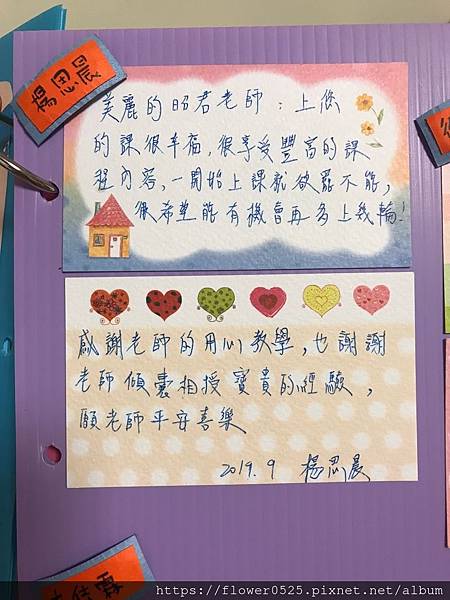 楊思晨
美麗的昭君老師：上您
的課很幸福，很享受豐富的課
程內容，一開始上課就欲罷不能，
很希望能有機會再多上幾輪！
感謝老師的用心教學，也謝謝
老師傾囊相授寶貴的經驗，
願老師平安喜樂
2019.9 楊思晨
https://flower0525.pixnet.net/album